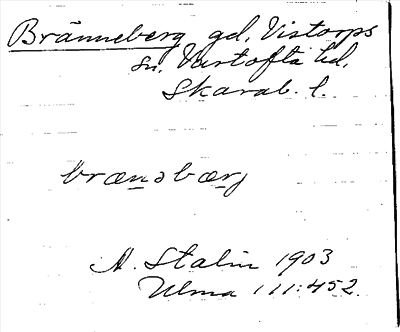 Bränneberg gd, Vistorps
sn. Vartofta hd.
Skarab. l.
brænəbærj
A. Stalin 1903
Ulma 111:452.